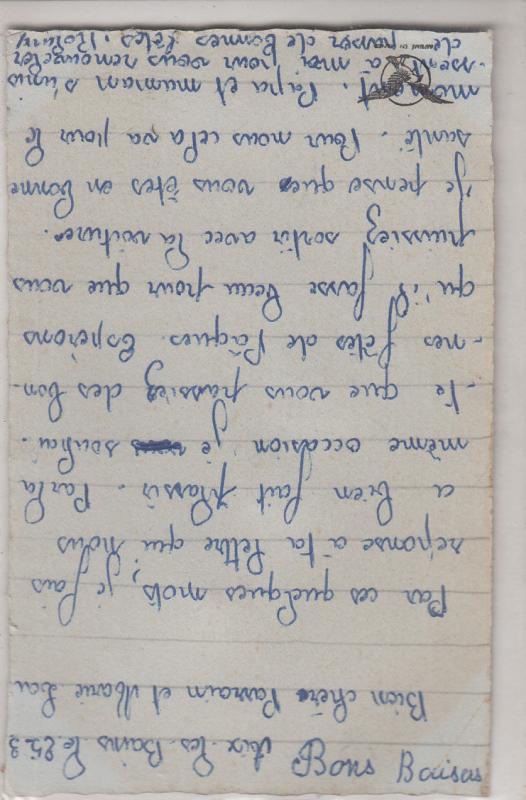 Bons Baisers
Aix les Bains le 25.3
Bien chers Parrain et Marie Lou
Par ces quelques mots, je fais
réponse à ta lettre qui nous
a bien fait plaisir. Par la
même occasion je souhai-
-te que vous passiez des bon-
-nes fêtes de Pâques. Espérons
qu'il fasse beau pour que vous
puissiez sortir avec la voiture.
Je pense que vous êtes en bonne
santé. Pour nous cela va pour le
moment. Papa et maman s'unis
-sent à moi pour vous renouveler
de passer de bonnes fêtes.